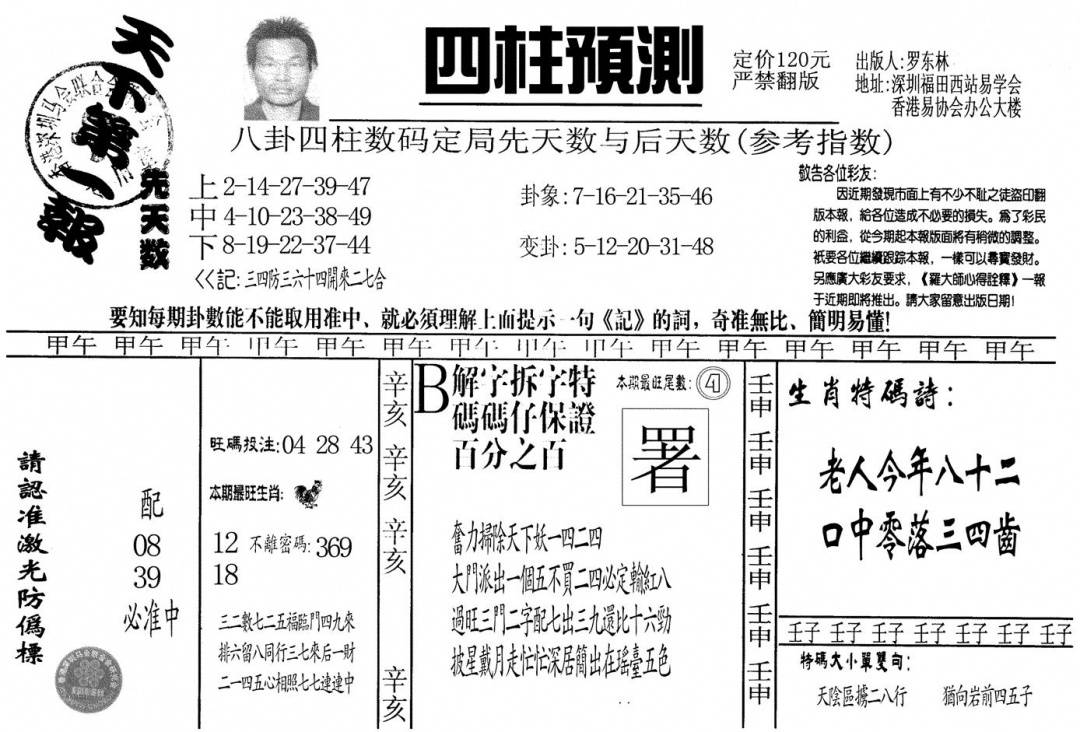 天下第一報
四柱預測
定价120元
严禁翻版
出版人:罗东林
地址:深圳福田西站易学会
香港易协会办公大楼
八卦四柱数码定局先天数与后天数(参考指数)
先天数
上 2-14-27-39-47
中 4-10-23-38-49
下 8-19-22-37-44
卦象:7-16-21-35-46
变卦:5-12-20-31-48
<<記:三四防三六十四開來二七合
敬告各位彩友:
因近期發現市面上有不少不耻之徒盗印翻
版本報,給各位造成不必要的損失。為了彩民
的利益,從今期起本報版面將有稍微的調整。
衹要各位繼續跟踪本報,一樣可以尋寶發財。
另應廣大彩友要求,《羅大師心得詮釋》一報
于近期即將推出。請大家留意出版日期!
要知每期卦數能不能取用准中、就必須理解上面提示一句《記》的詞,奇准無比、簡明易懂!
甲午 甲午 甲午 甲午 甲午 甲午 甲午 甲午 甲午 甲午 甲午 甲午 甲午 甲午 甲午
請認准激光防僞標
配
08
39
必准中
旺碼投注:04 28 43
本期最旺生肖:
12 不離密碼:369
18
三二數七二五福臨門四九來
排六留八同行三七來后一財
二一四五心相照七七連連中
辛亥
辛亥
辛亥
辛亥
B解字拆字特
碼碼仔保證
百分之百
本期最旺尾數:④
署
奮力掃除天下妖一四二四
大門派出一個五不買二四必定輸紅八
過旺三門二字配七出三九還比十六勁
披星戴月走忙忙深居簡出在瑤臺五色
壬申
壬申
壬申
壬申
壬申
壬申
生肖特碼詩:
老人今年八十二
口中零落三四齒
壬子 壬子 壬子 壬子 壬子 壬子 壬子
特碼大小單雙句:
天陰區擄二八行 猶向岩前四五子